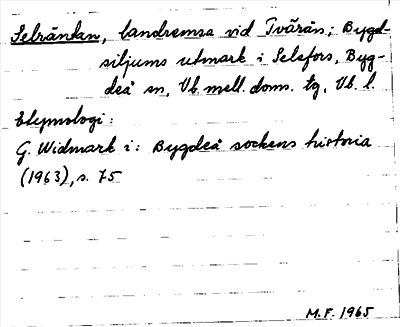 Selränkan, landremsa vid Tvärån; Bygd-
siljums utmark i Selefors, Byg-
deå sn, Vb. mell. doms. tg, Vb. l.
Etymologi:
G. Widmark i: Bygdeå sockens historia
(1963), s. 75
M.F. 1965